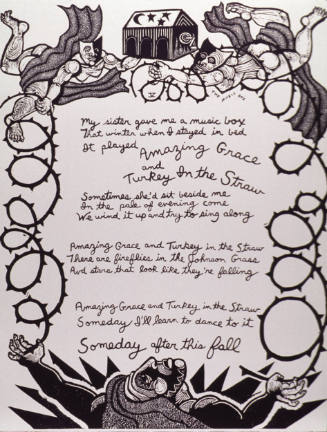 My sister gave me a music box
That winter when I stayed in bed
It played Amazing Grace
and
Turkey In the Straw
Sometimes she'd sit beside me
In the pale of evening come
We wind it up and try to sing along
Amazing Grace and Turkey in the Straw
There are fireflies in the Johnson Grass
And stars that look like they're falling
Amazing Grace and Turkey in the Straw
Someday I'll learn to dance to it
Someday after this fall